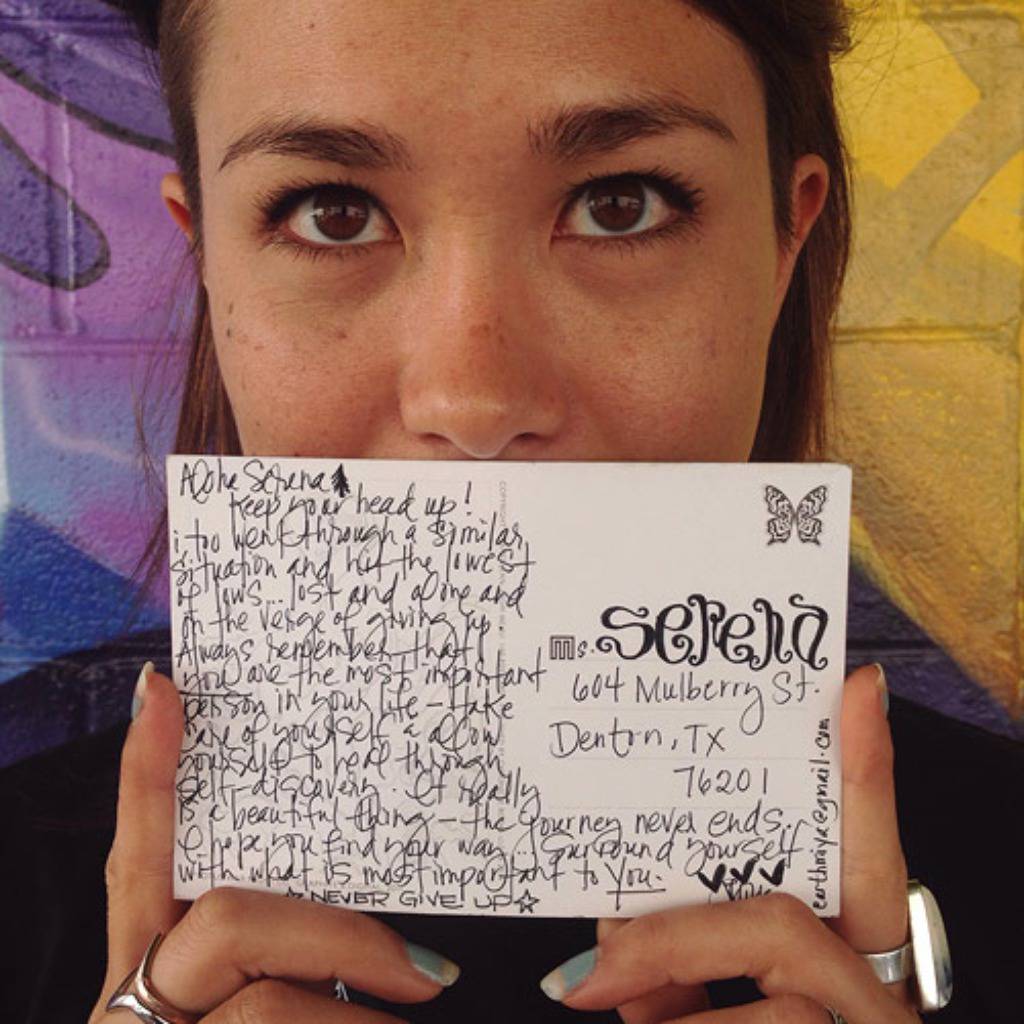 Aloha Serena
Keep your head up!
i, too went through a similar
situation and hit the lowest
of lows... lost and alone and
on the verge of giving up
Always remember that
you are the most important
person in your life - take
care of yourself & allow
yourself to heal through
self-discovery. It really
is a beautiful thing - the journey never ends.
I hope you find your way... Surround yourself
with what is most important to you.
☆NEVER GIVE UP☆
ms. Serena
604 Mulberry St.
Denton, TX
76201
earthmiya@gmail.com